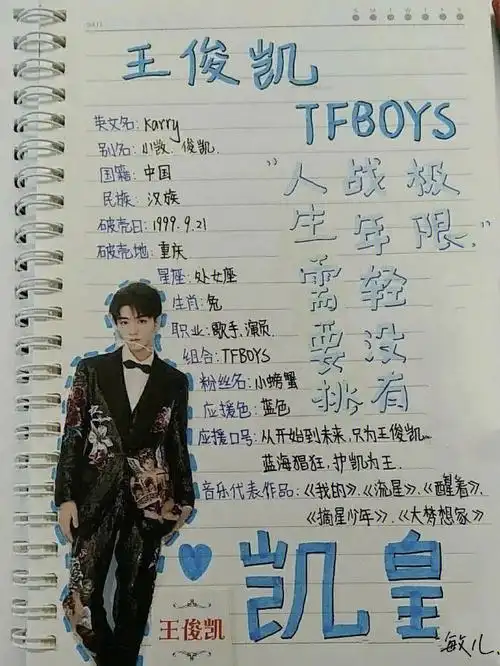 王俊凯
TFBOYS
英文名: Karry
别名: 小凯、俊凯.
国籍: 中国
民族: 汉族
破壳日: 1999.9.21
破壳地: 重庆
星座: 处女座
生肖: 兔
职业: 歌手、演员
组合: TFBOYS
粉丝名: 小螃蟹
应援色: 蓝色
应援口号: 从开始到未来,只为王俊凯...
蓝海猖狂,护凯为王.
音乐代表作品:《我的》、《流星》、《醒着》、
《摘星少年》、《大梦想家》
"人生需要挑
战年轻没有
极限."
凯皇
王俊凯
敏儿.